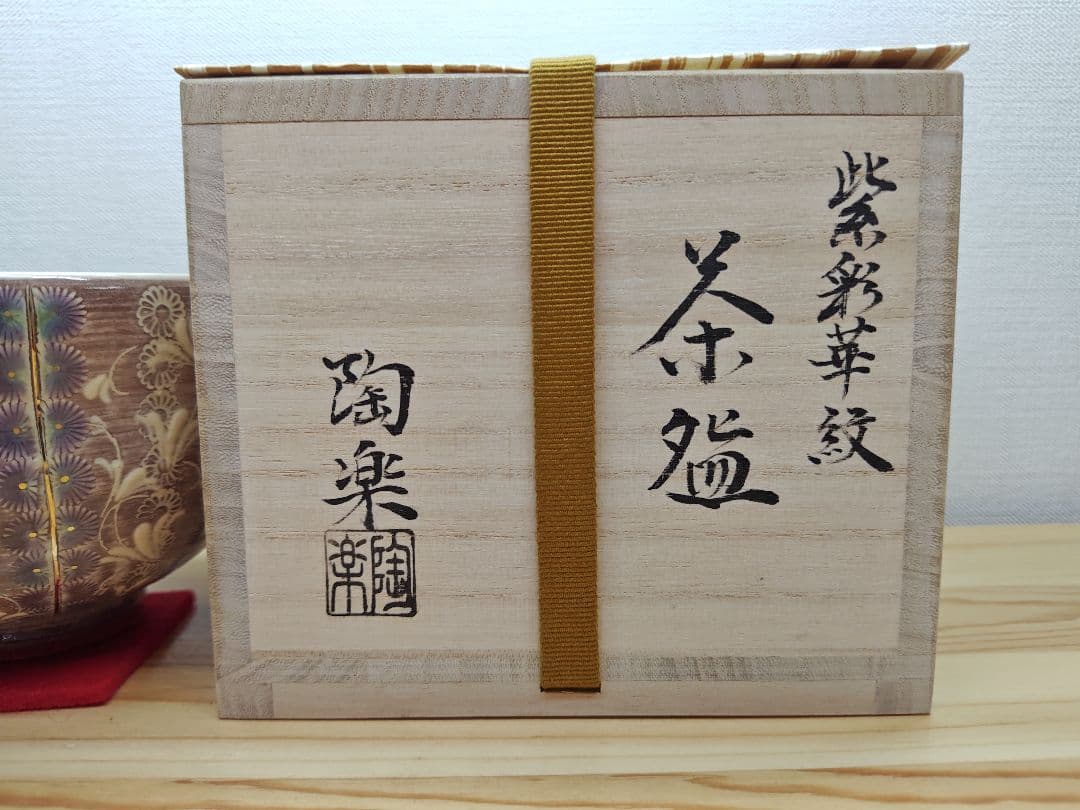 紫彩華紋
茶盌
陶楽
陶楽